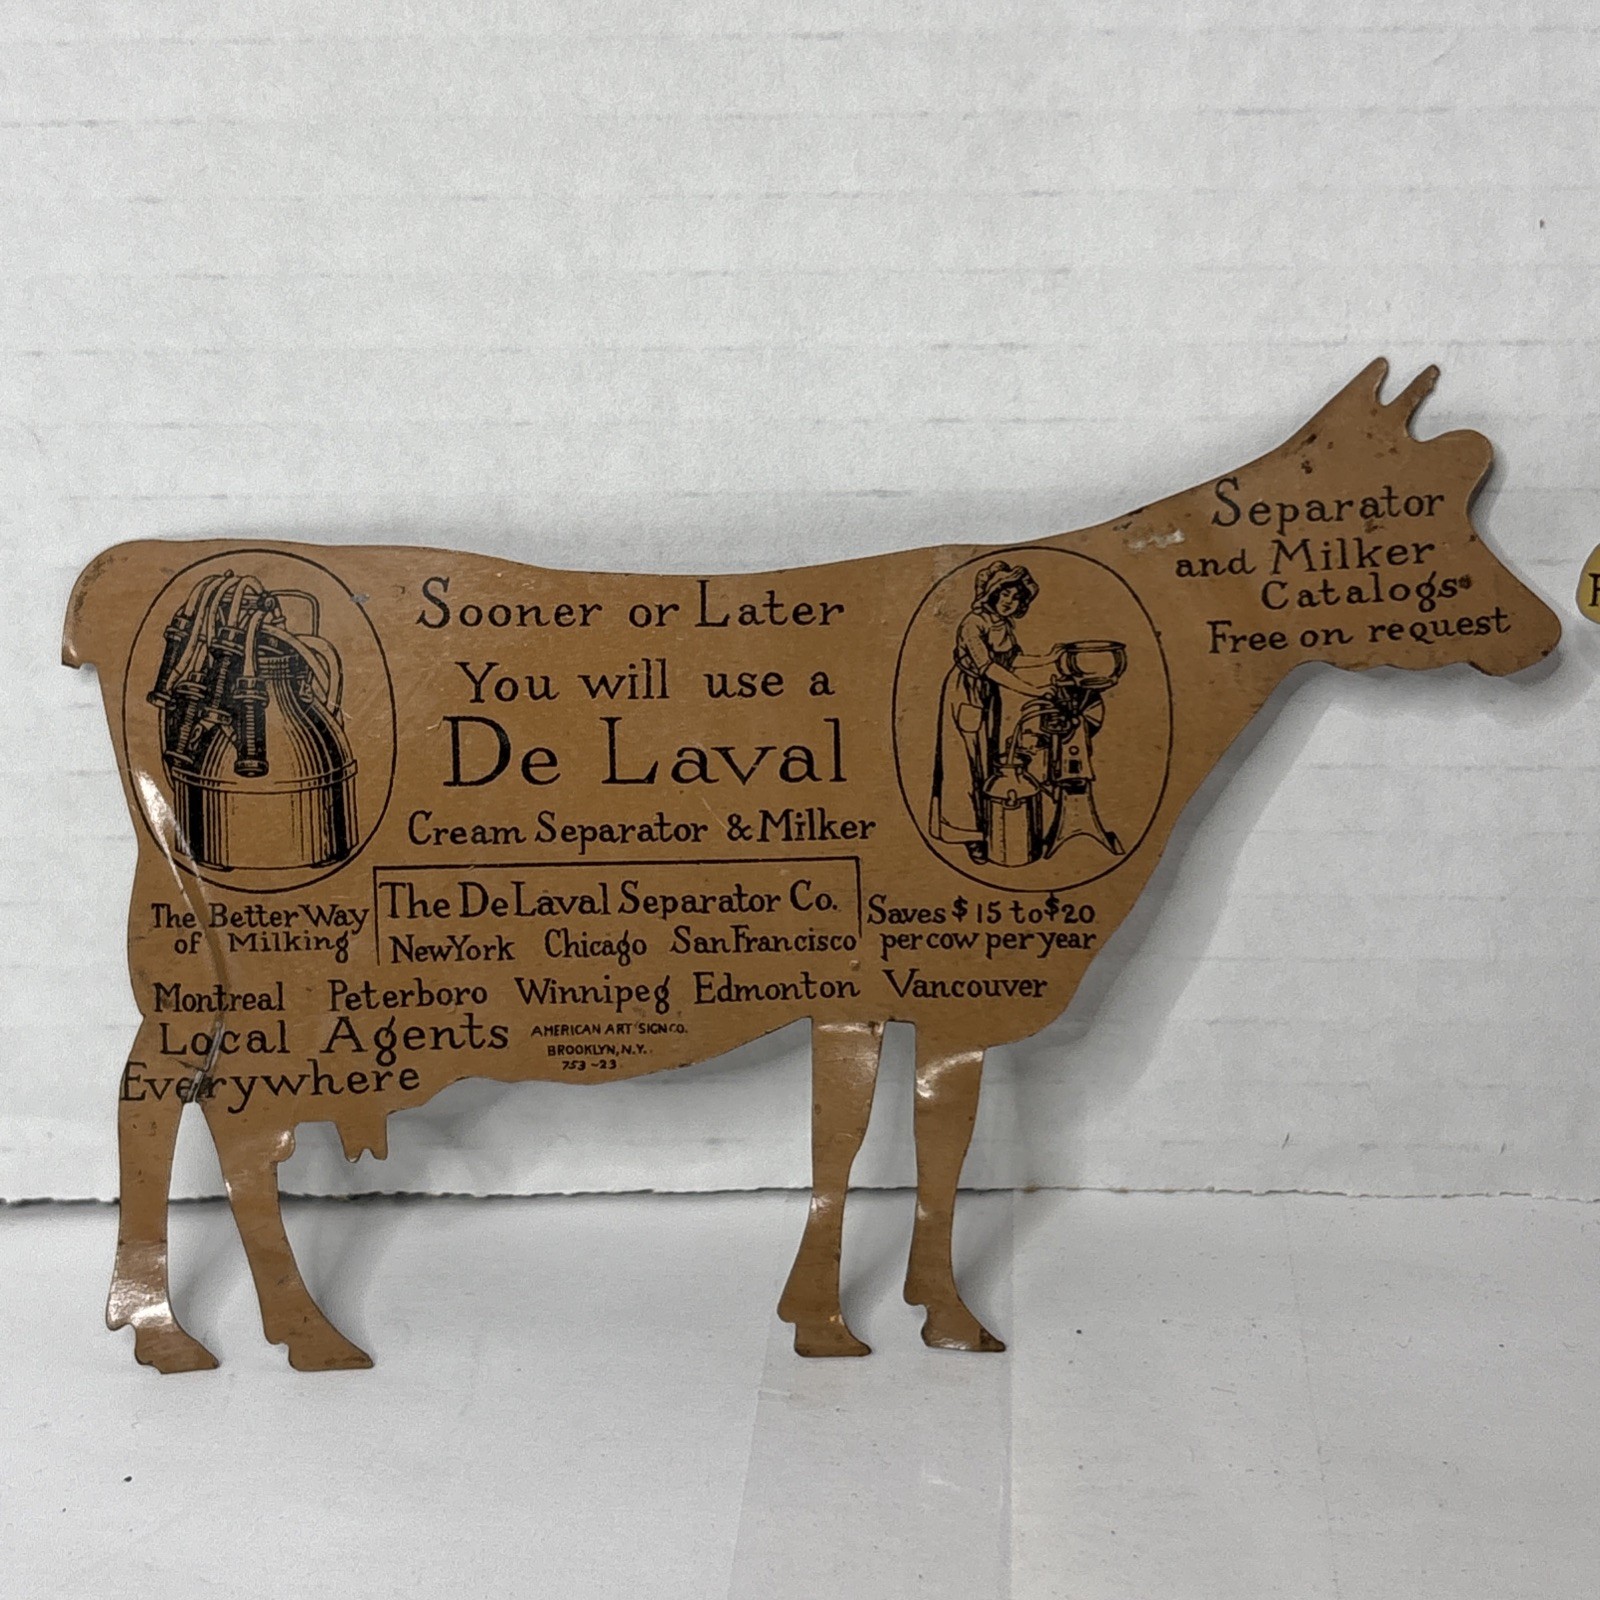 Separator
and Milker
Catalogs
Free on request
Sooner or Later
You will use a
De Laval
Cream Separator & Milker
The Better Way
of Milking
The De Laval Separator Co.
New York Chicago San Francisco
Saves $15 to $20
per cow per year
Montreal Peterboro Winnipeg Edmonton Vancouver
Local Agents
Everywhere
AMERICAN ART SIGN CO.
BROOKLYN, N.Y.
753-23